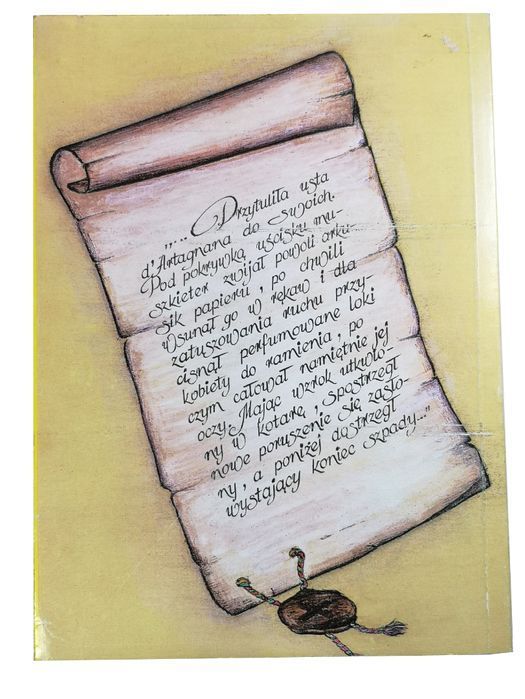 „... Przytuliła usta
d'Artagnana do swoich.
Pod pokrywką uścisku mu-
szkieter zwijał powoli arku-
sik papieru, po chwili
wsunął go w rękaw i dla
zatuszowania ruchu przy-
cisnął perfumowane loki
kobiety do ramienia, po
czym całował namiętnie jej
oczy. Mając wzrok utkwio-
ny w kotarę, spostrzegł
nowe poruszenie się zasło-
ny, a poniżej dostrzegł
wystający koniec szpady..."